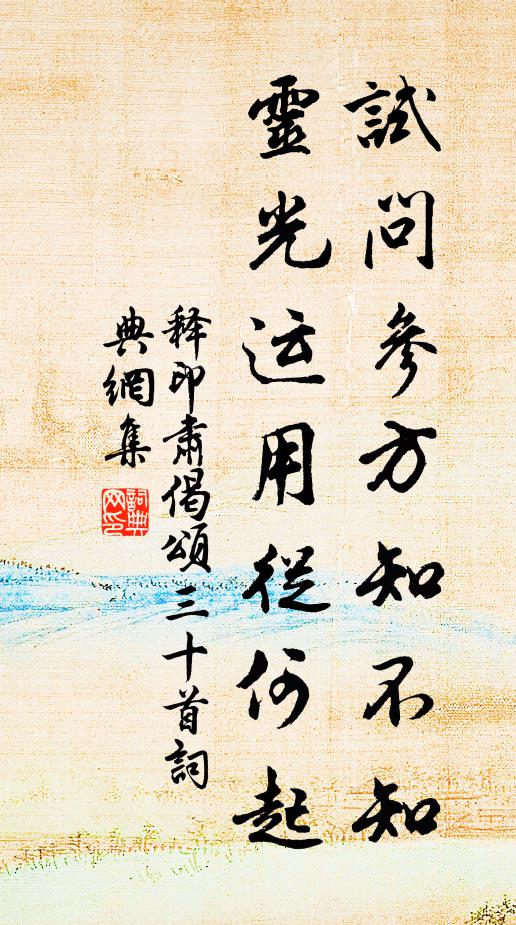 試問參方知不知
靈光运用從何起
释印肅偈頌三十首詞
典網集
詞典
网印